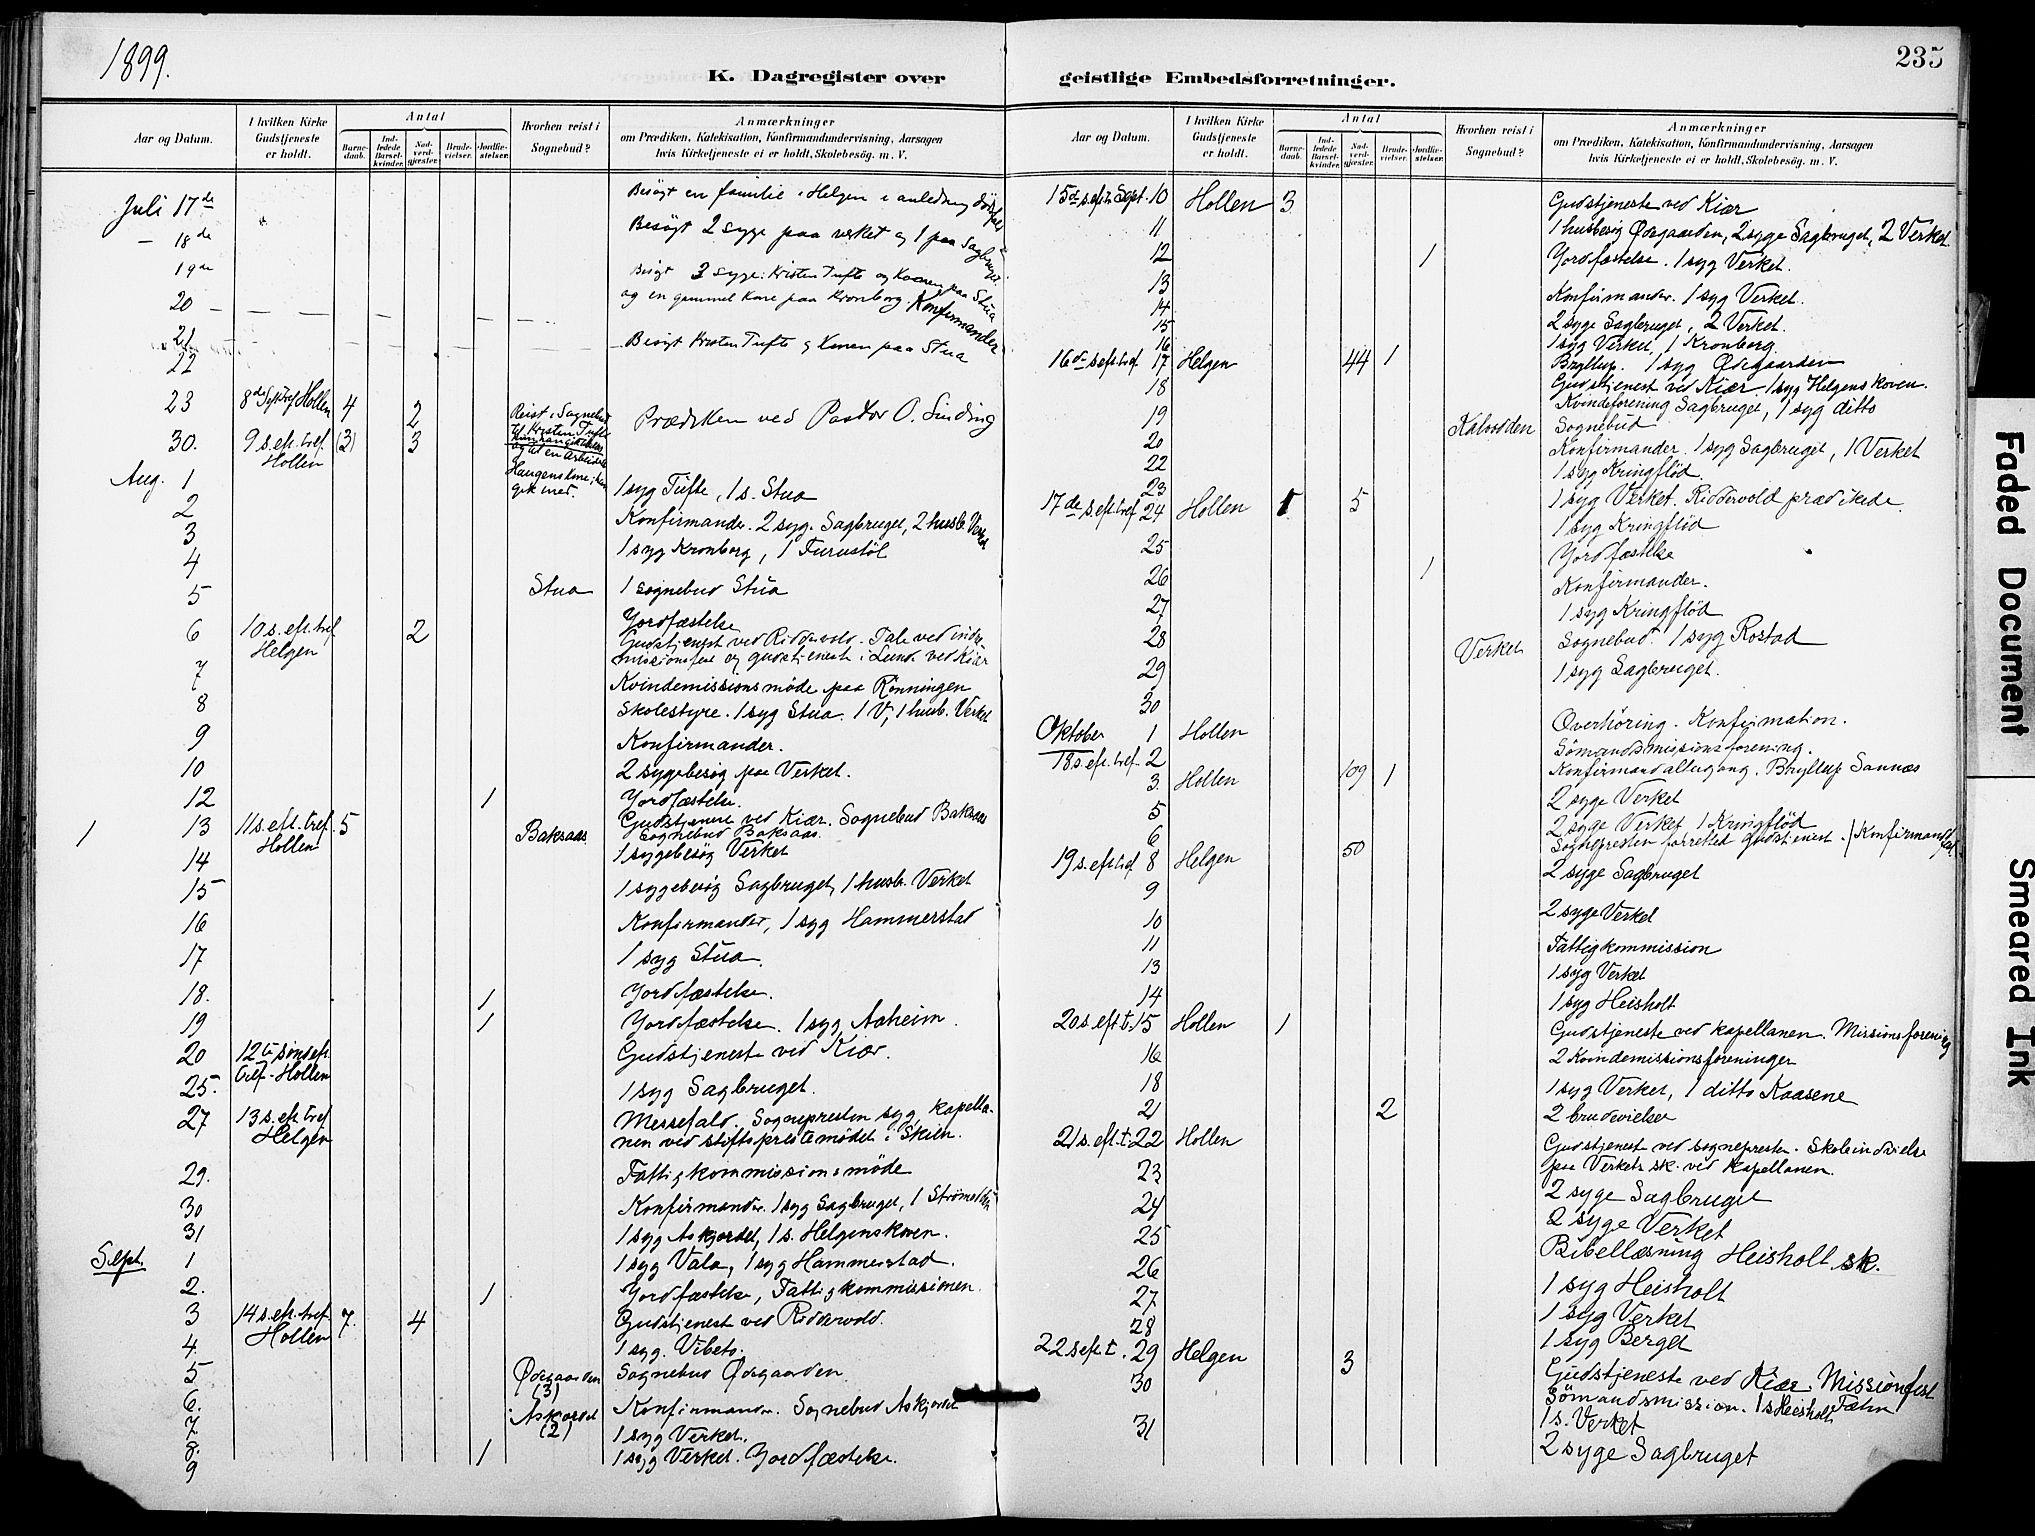 1899.
K. Dagregister over
Aar og Datum.
I hvilken Kirke Gudstjeneste er holdt.
Antal
Barnedaab.
Indledede Barselkvinder.
Nadverdgjester.
Brudevielser.
Jordfæstelser.
Hvorhen reist i Sognebud?
Anmærkninger
om Prædiken, Katekisation, Konfirmandundervisning, Aarsagen
hvis Kirketjeneste ei er holdt, Skolebesög. m. V.
Juli 17de Besögt en familie i Helgen i anledning dödsfald
– 18de Besögt 2 syge paa verket og 1 paa Sagbruget
19de Besögt 3 syge: Kristen Tufte og Konen paa Stua
og en gammel Kone paa Kronborg. Konfirmander
20
21 Besögt Kristen Tufte og Konen paa Stua
22
23 8de S eft Tref Hollen 4 2 Reist i Sognebud til Kristen Tufte Prædiken ved Pastor O. Sinding
30. 9 s. eft. tref. Hollen (3) 3 og til en Arbeider
Aug. 1 1 syg Tufte, 1 s. Stua
2 Konfirmander. 2 syg. Sagbruget, 2 husb. Verket
3 1 syg Kronborg, 1 Furustöl
4
5 Stua 1 sognebud Stua
Jordfæstelse
6 10 s. eft. tref Helgen 2 Gudstjenest ved Riddervold. Tale ved indre
missionsfest og gudstjeneste i Lunde ved Kiær
7 Kvindemissionsmöde paa Rönningen
8 Skolestyre. 1 syg Stua. 1 V, 1 husb. Verket
9 Konfirmander.
10 2 sygebesög paa Verket.
12 1 Jordfæstelse.
1 13 11 s. eft. tref. Hollen 5 Baksaas Gudstjenere ved Kiær. Sognebud Baksaas
Sognebud Baksaas.
14 1 sygebesög Verket
15 1 sygebesög Sagbruget, 1 husb. Verket
16 Konfirmander, 1 syg Hammerstad
17 1 syg Stua.
18. 1 Jordfæstelse.
19 1 Jordfæstelse. 1 syg Aaheim.
20 12te sönd eft. tref. Hollen Gudstjeneste ved Kiær.
25. 1 syg Sagbruget.
27 13 s. eft. tref Helgen Messefald. Sognepresten syg, kapella-
nen ved stiftsprestemödet i Skien.
29. Fattigkommissionsmöde
30 Konfirmander. 1 syg Sagbruget, 1 Strömodden
31 1 syg Askjordet, 1 s. Helgenskoven.
Sept. 1 1 syg Vala, 1 syg Hammerstad.
2. 1 Jordfæstelse, Fattigkommissionen.
3 14 s. eft. tref. Hollen 7. 4 Gudstjenest ved Riddervold.
4. 1 syg. Vibeto.
5 Ødegaarden (3) Sognebud Ødegaarden
6. Askjordet (2) Konfirmander. Sognebud Askjordet
7 1 syg Verket.
8. 1 1 syg Verket. Jordfæstelse.
9
235
geistlige Embedsforretninger.
Aar og Datum.
I hvilken Kirke Gudstjeneste er holdt.
Antal
Barnedaab.
Indledede Barselkvinder.
Nadverdgjester.
Brudevielser.
Jordfæstelser.
Hvorhen reist i Sognebud?
Anmærkninger
om Prædiken, Katekisation, Konfirmandundervisning, Aarsagen
hvis Kirketjeneste ei er holdt, Skolebesög. m. V.
15de s. eft. tr. Sept. 10 Hollen 3 Gudstjeneste ved Kiær
11 1 husbesög Ødegaarden, 2 syge Sagbruget, 2 Verket
12 1 Jordfæstelse. 1 syg Verket.
13 Konfirmander. 1 syg Verket.
14 2 syge Sagbruget, 2 Verket.
15 1 syg Verket, 1 Kronborg
16 Bryllup. 1 syg Ødegaarden
16de s eft. tref. 17 Helgen 44 1 Gudstjenest ved Kiær. 1 syg Helgenskoven.
18 Kvindeforening Sagbruget, 1 syg ditto
19 Kalvodden Sognebud
20 Konfirmander. 1 syg Sagbruget, 1 Verket
22 1 syg Kringflöd
23 1 syg Verket. Riddervold prædikede.
17de s. eft. tref 24 Hollen 1 5 1 syg Kringflöd
25 Jordfæstelse
26 1 Konfirmander.
27 1 syg Kringflöd
28 Verket Sognebud. 1 syg Rostad
29 1 syg Sagbruget.
30
Oktober 1 Hollen Overhöring. Konfirmation.
18 s. eft. tref. 2 Sömandsmissionsforening.
3. Hollen 109 1 Konfirmandaltergang. Bryllup Sannæs
2 syge Verket
5 2 syge Verket 1 Kringflöd
6 Sognepresten forretted gudstjenest. /Konfirmand
19 s. eft tref. 8 Helgen 50 2 syge Sagbruget
9 2 syge Verket
10 Fattigkommission
11 1 syg Verket
13 1 syg Heisholt
14
20 s. eft t. 15 Hollen 1 Gudstjeneste ved kapellanen. Missionsforening
16 2 Kvindemissionsforeninger
18 1 syg Verket, 1 ditto Kaasene
21 2 2 brudevielser
21 s. eft. t. 22 Hollen Gudstjenest ved sognepresten. Skoleindvielse
paa Verkets sk. ved kapellanen.
23 2 syge Sagbruget
24 2 syge Verket
25 Bibellæsning Heisholt sk.
26 1 syg Heisholt
27 1 syg Verket
28 1 syg Berget
22 s eft. t. 29 Helgen 3 Gudstjeneste ved Kiær. Missionsfest
30 Sömandsmission. 1 s Heisholt
31 1 s. Verket
2 syge Sagbruget
Faded Document
Smeared Ink